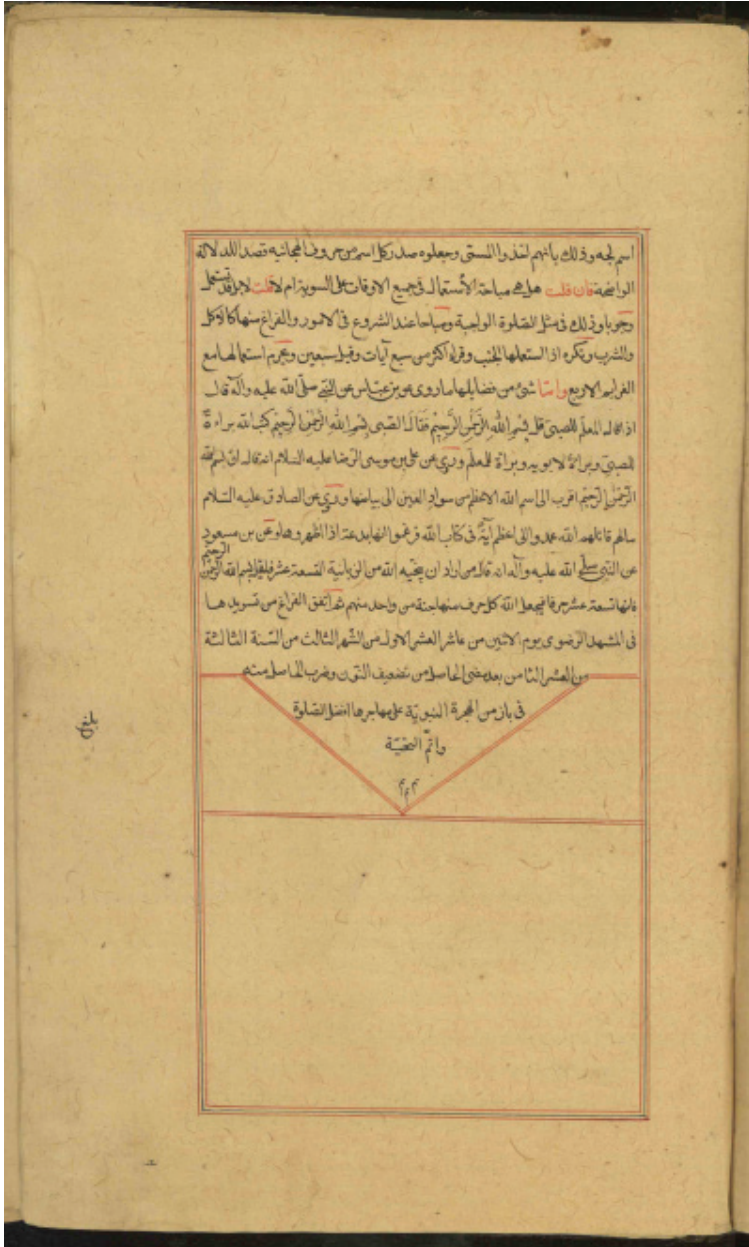 اسم لجه وذلك بانهم اخذوا المسمى وجعلوه صدر كل اسم من حروف الهجائيه قصدا للدلالة
الواضحة فان قلت هل هى مباحة الأستعمال فى جميع الاوقات على السوية ام لا قلت لا بل قد تستعمل
وجوبا وذلك فى مثل الصلوة الواجبة ومباحا عند الشروع فى الامور والفراغ منها كالاكل
والشرب وتكره اذا استعملها الجنب وقراء اكثر من سبع آيات وقيل سبعين وتحرم استعمالها مع
العزايم الاربع واما شئ من فضايلها ما روى عن بن عباس عن النبي صلى الله عليه وآله قال
اذا قال المعلم للصبى قل بِسْمِ اللهِ الرَّحْمٰنِ الرَّحِيْمِ فقال الصبى بِسْمِ اللهِ الرَّحْمٰنِ الرَّحِيْمِ كتب الله براءة
للصبى وبراءة لابويه وبراة للمعلم وروى عن على بن موسى الرضا عليه السلام انه قال ان بسم الله
الرّحمٰن الرّحيم اقرب الى اسم الله الاعظم من سواد العين الى بياضها وروى عن الصادق عليه السلام
مالهم قاتلهم الله عمدوا الى اعظم آية فى كتاب الله فزعموا انها بدعة اذا اظهروها وعن بن مسعود
عن النبي صلى الله عليه وآله انه قال من اراد ان ينجيه الله من الزبانية التسعة عشر فليقل بسم الله الرحمن الرحيم
فانها تسعة عشر حرفا فيجعل الله كل حرف منها جنة من واحد منهم ثم اتفق الفراغ من تسويدها
فى المشهد الرضوى يوم الاثنين من عاشر العشر الاول من الشهر الثالث من السّنة الثالثة
من العشر الثامن بعد مضى الحاصل من تضعيف النون وضرب الحاصل منه
فى باز من الهجرة النبويّة على مهاجرها افضل الصلوة
واتمّ التحيّة
م م م
بلغ